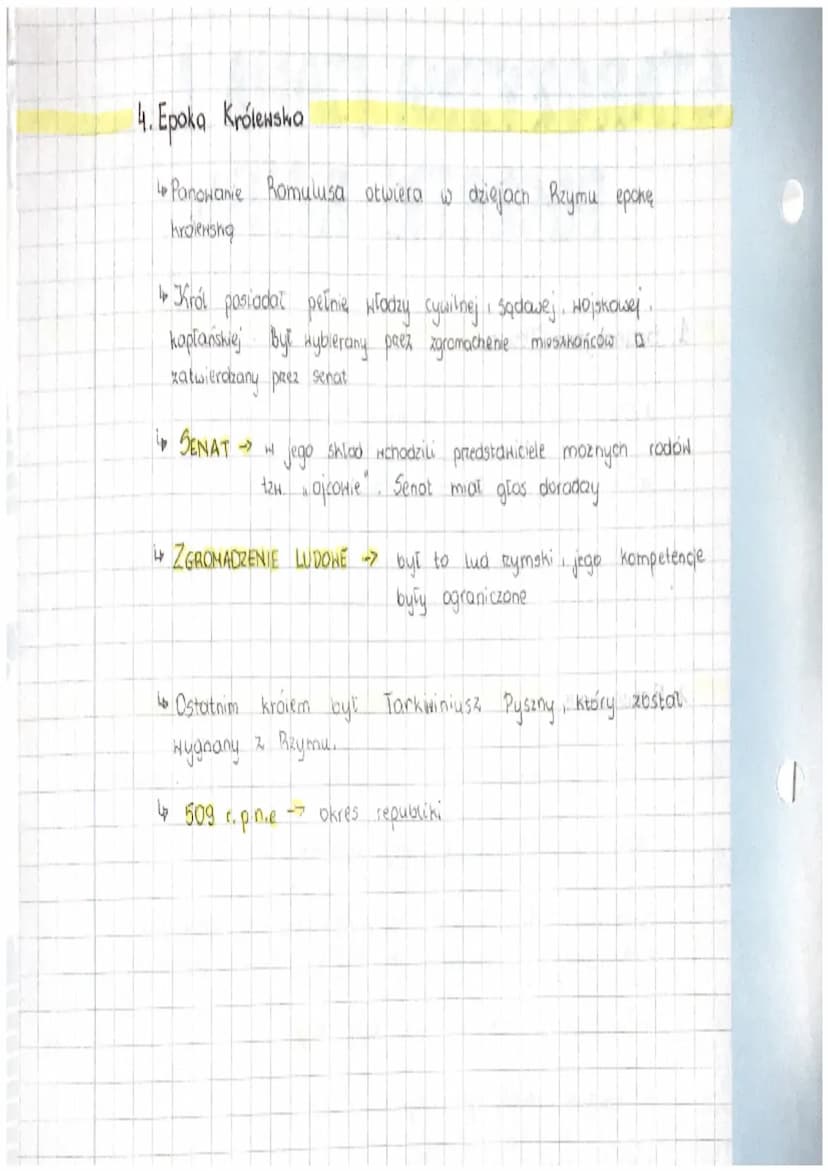 4. Epoka Królewska
↳ Panowanie Romulusa otwiera w dziejach Rzymu epokę
królewską
↳ Król posiadał pełnię władzy cywilnej i sądowej, wojskowej i
kapłańskiej. Był wybierany przez zgromadzenie mieszkańców a
zatwierdzany przez senat
↳ SENAT → w jego skład wchodzili przedstawiciele możnych rodów
tzw. „ojcowie". Senat miał głos doradczy
↳ ZGROMADZENIE LUDOWE → był to lud rzymski, jego kompetencje
były ograniczone
↳ Ostatnim królem był Tarkwiniusz Pyszny, który został
wygnany z Rzymu.
↳ 509 r. p.n.e → okres republiki